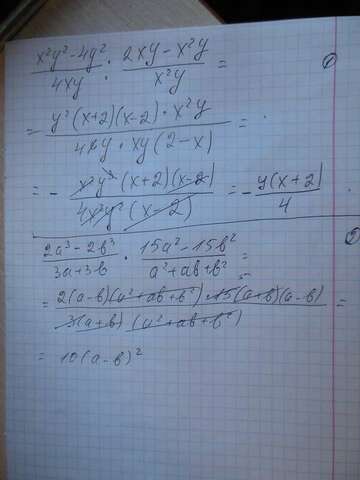 (x²y² - 4y²)/(4xy) : (2xy - x²y)/(x²y) = ①
= (y²(x+2)(x-2) · x²y)/(4xy · xy(2-x)) =
= - (x²y³(x+2)(x-2))/(4x²y²(x-2)) = - (y(x+2))/4
(2a³ - 2b³)/(3a+3b) · (15a² - 15b²)/(a² + ab + b²) = ②
= (2(a-b)(a²+ab+b²) · 15(a+b)(a-b))/(3(a+b)(a²+ab+b²)) =
= 10(a-b)²